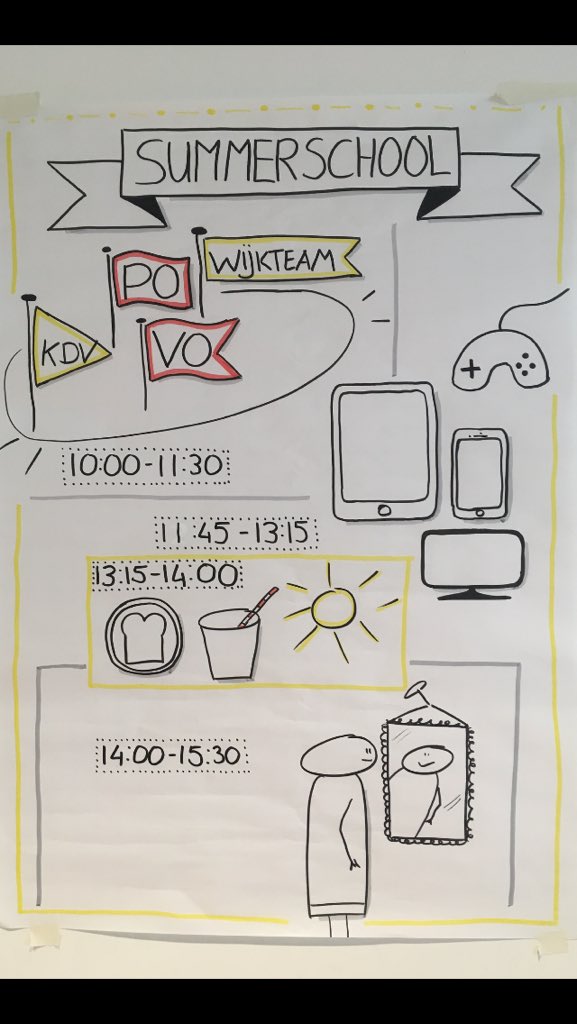 SUMMERSCHOOL
PO
WIJKTEAM
KDV
VO
10:00-11:30
11:45-13:15
13:15-14:00
14:00-15:30